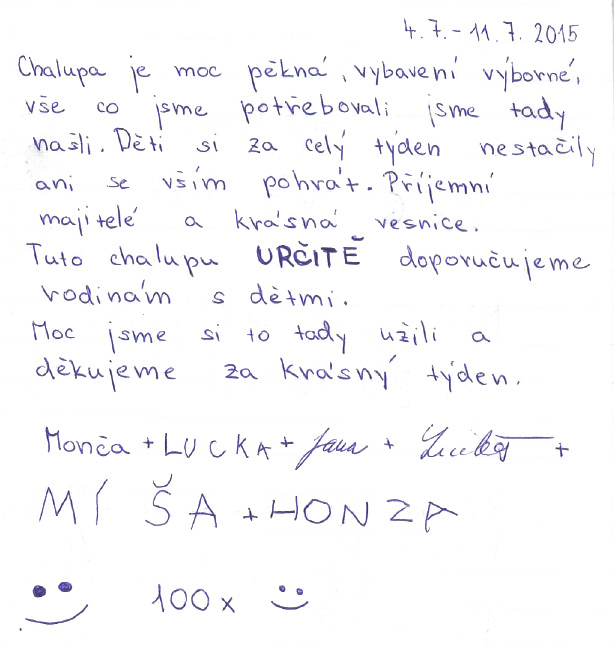 4.7. - 11.7. 2015
Chalupa je moc pěkná, vybavení výborné,
vše co jsme potřebovali jsme tady
našli. Děti si za celý týden nestačily
ani se vším pohrát. Příjemní
majitelé a krásná vesnice.
Tuto chalupu URČITĚ doporučujeme
rodinám s dětmi.
Moc jsme si to tady užili a
děkujeme za krásný týden.
Monča + LUCKA + Jana + Lukáš +
MÍŠA + HONZA
100x